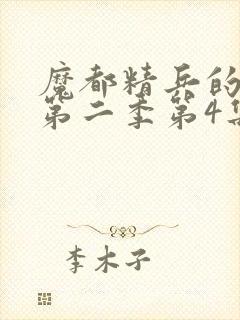 魔都精兵的
第二季第4集
李木子